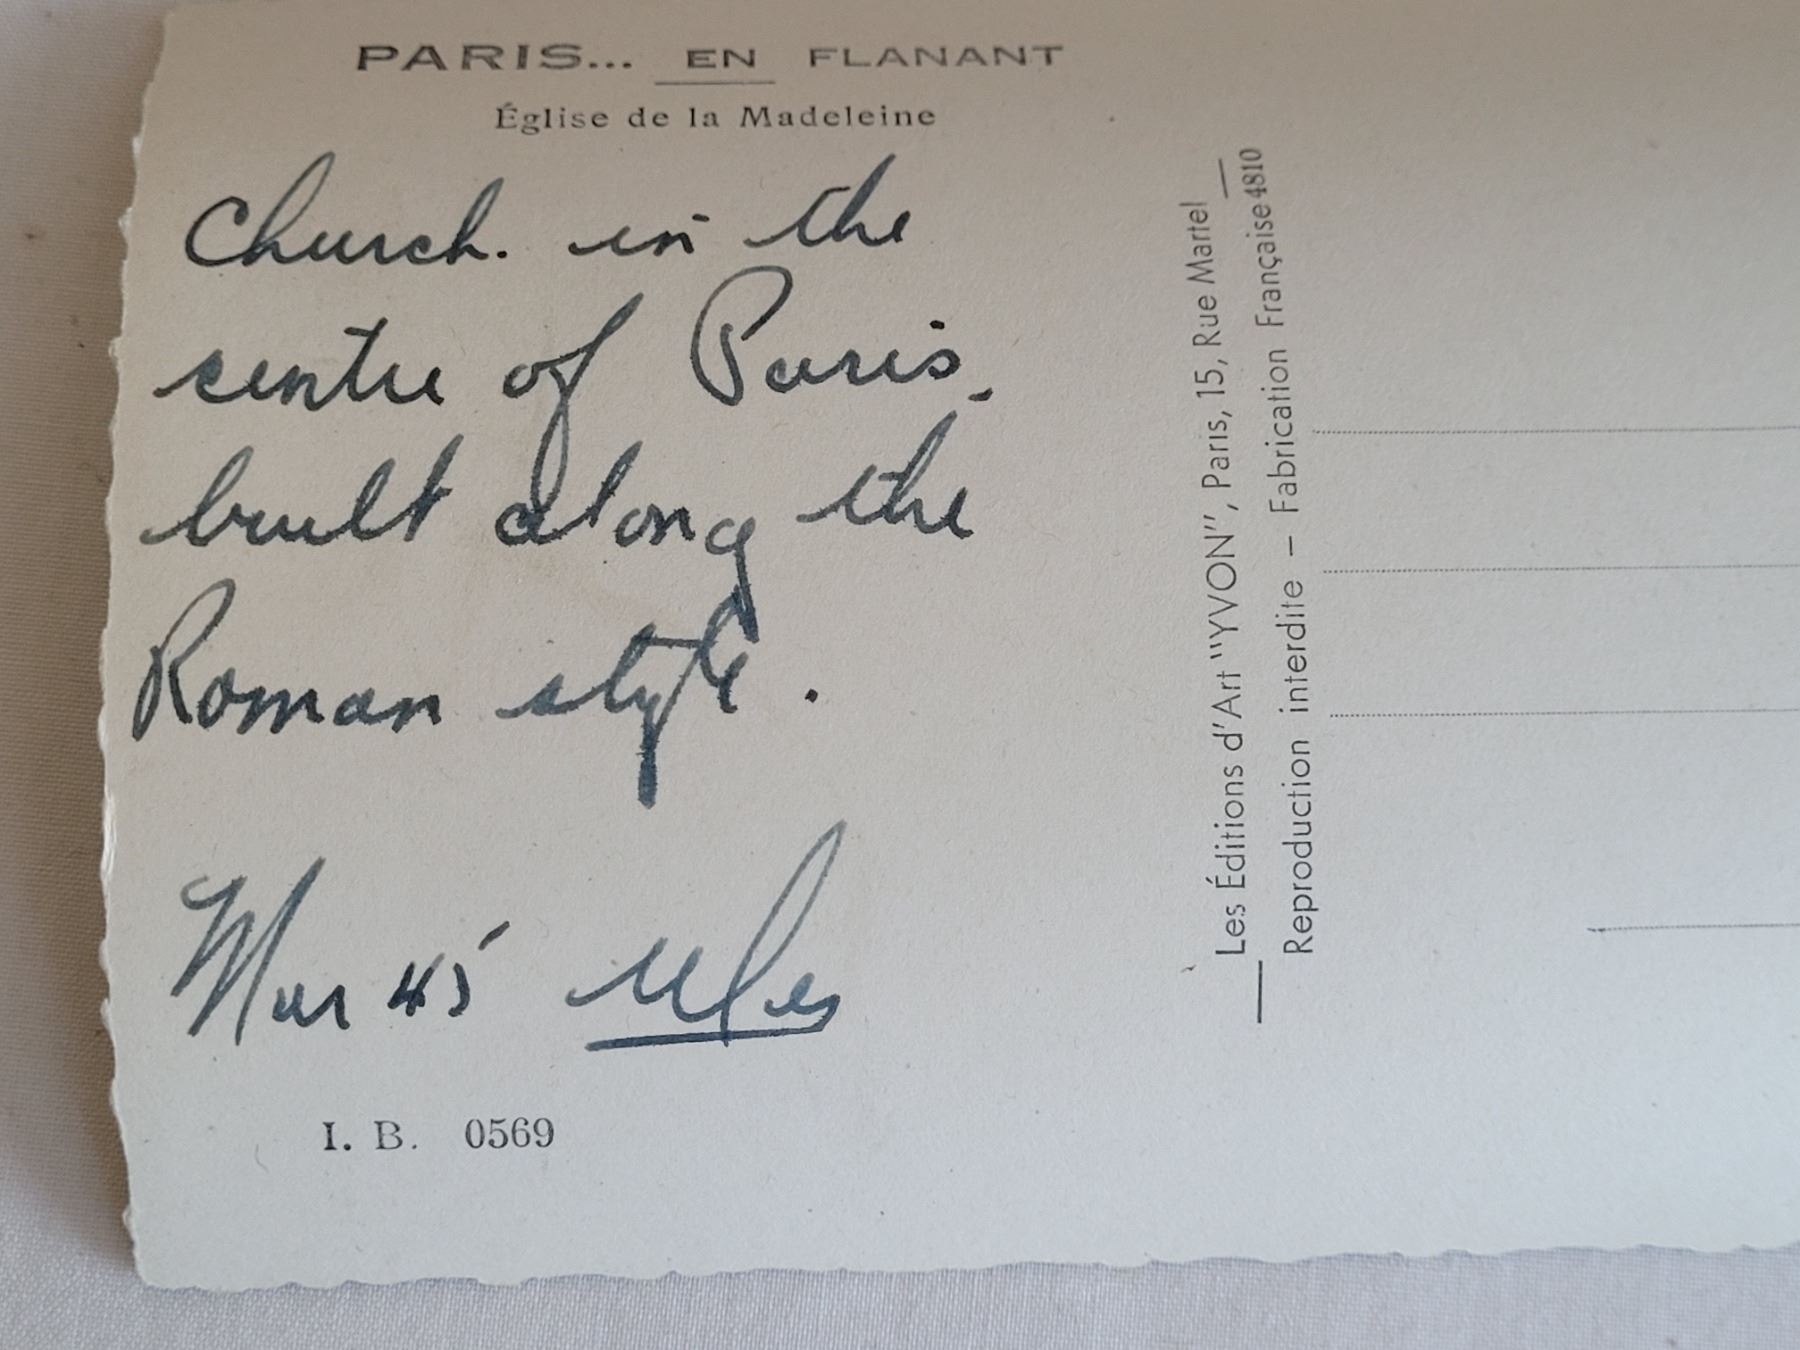 PARIS... EN FLANANT
Église de la Madeleine
Church. in the
centre of Paris.
built along the
Roman style.
Mar 45
I. B. 0569
Les Éditions d'Art "YVON", Paris, 15, Rue Martel
Reproduction interdite – Fabrication Française 4810